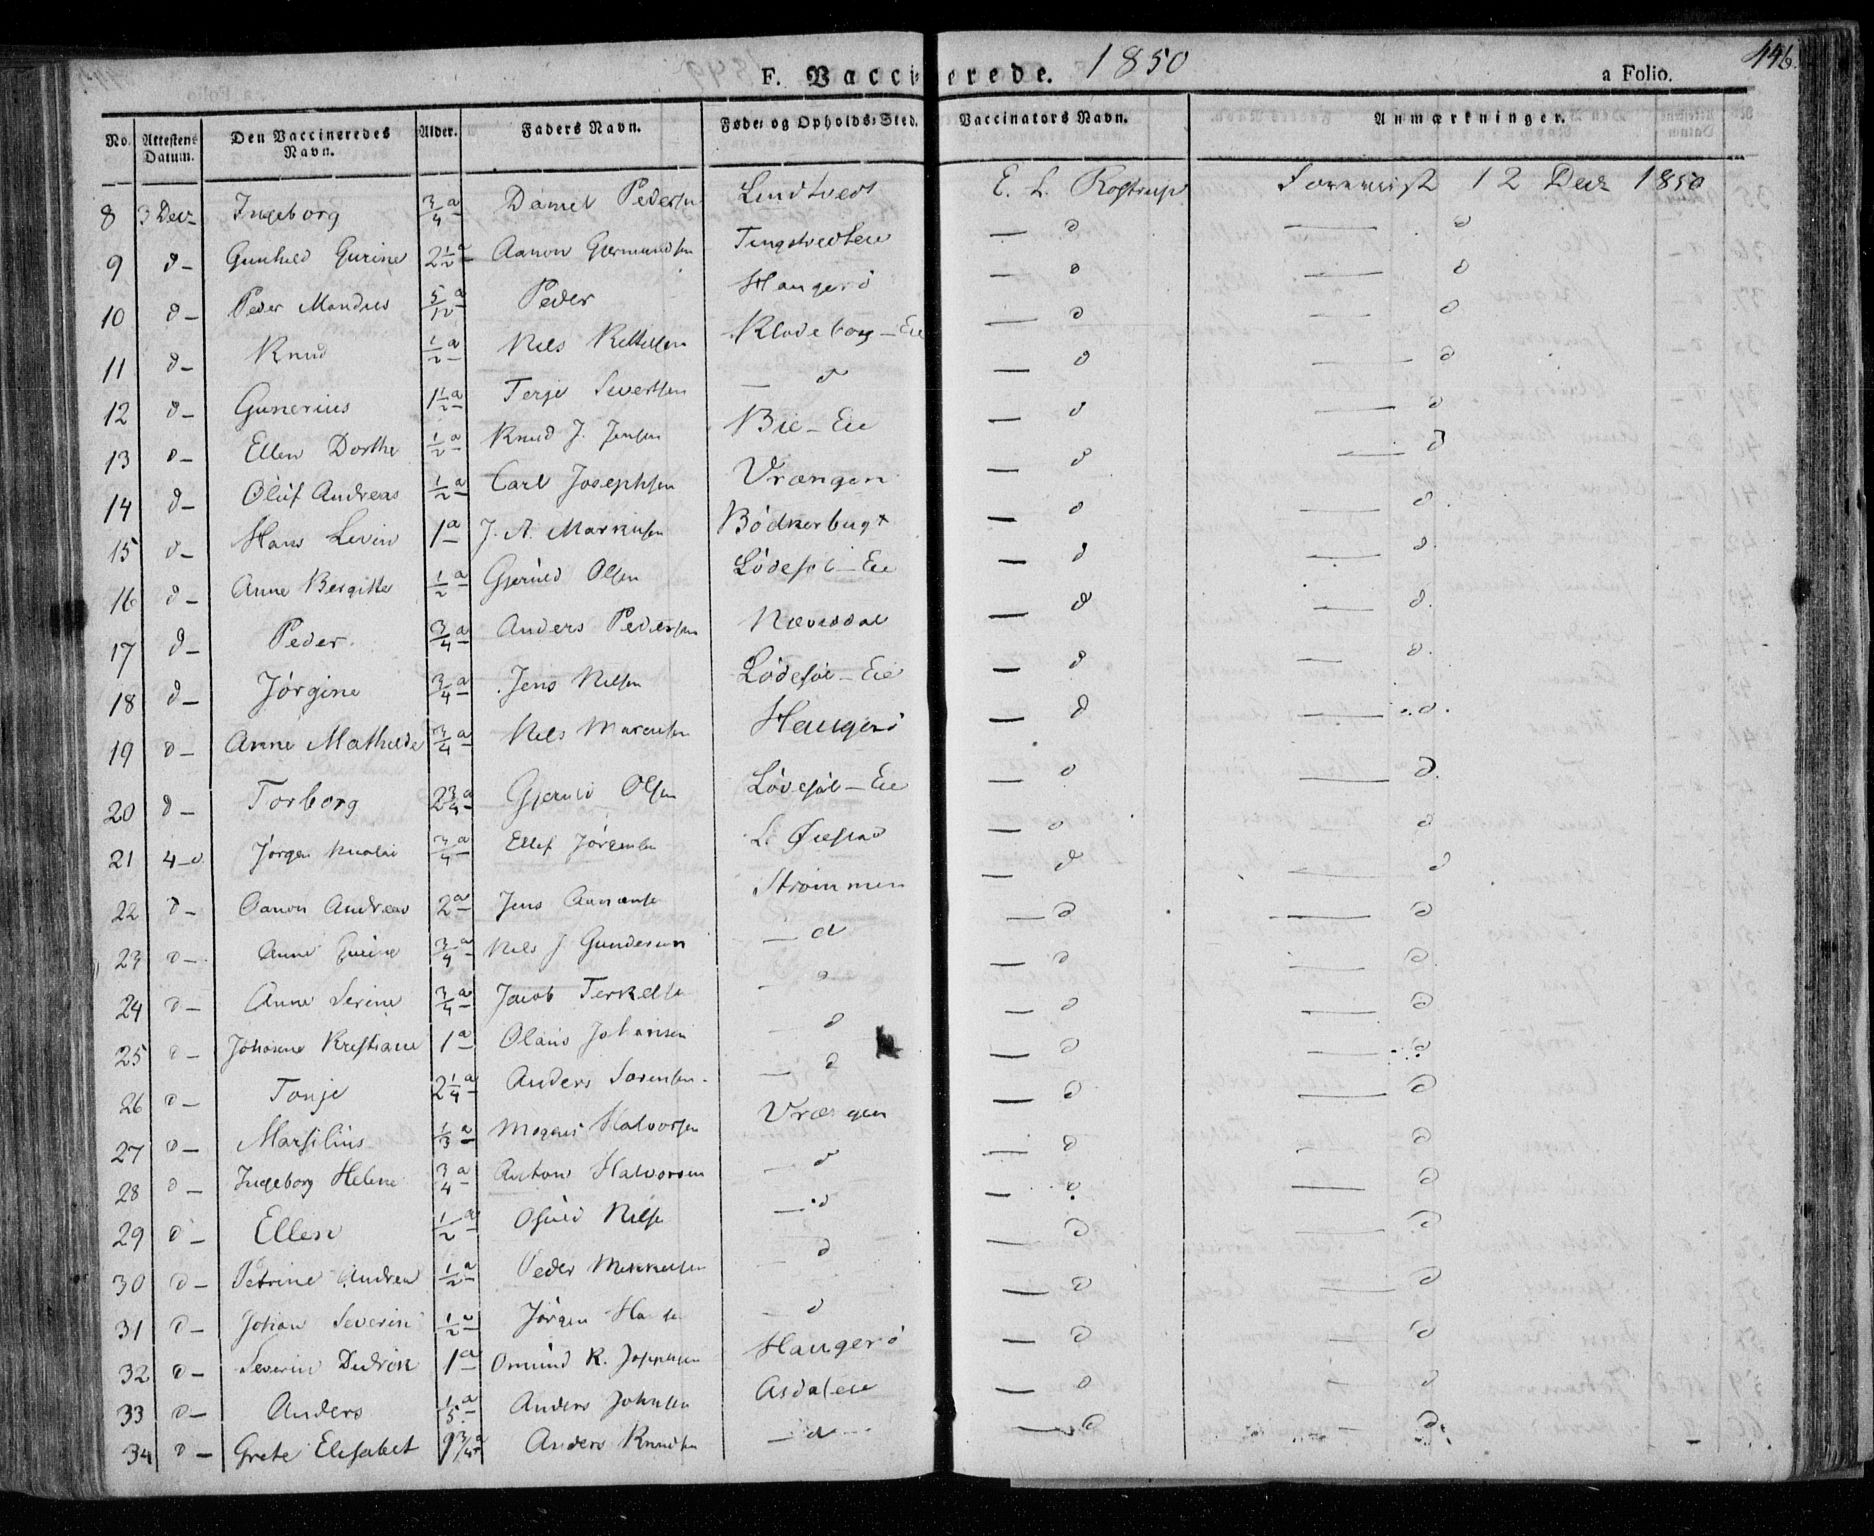 F. Vaccinerede. 1850
a Folio. 446.
No. Attestens Datum. Den Vaccineredes Navn. Alder. Faders Navn. Føde- og Opholds-Sted. Vaccinators Navn. Anmærkninger.
8 3 Decr Ingeborg 3/4 a Daniel Pedersen Lindtvedt E. L. Rostrup Forevist 12 Decr 1850
9 d - Gunhild Gurine 2 1/2 a Aanon Gjermundsen Tingstvedteie — d — d
10 d - Peder Mandius 5/12 a Peder Haugerö — d — d
11 d - Knud 1/2 a Nils Kittelsen Klodeborg - Eie — d — d
12 d - Gunerius 1 1/2 a Terje Sivertsen — d — d — d
13 d - Ellen Dorthe 1/2 a Knud J. Jensen Bie - Eie — d — d
14 d - Oluf Andreas 1/2 a Carl Josephsen Vrængen — d — d
15 d - Hans Levin 1 a J. A. Markusen Bödkerbugt — d — d
16 d - Anne Bergitte 1/2 a Gjeruld Olsen Lödesöl - Eie — d — d
17 d - Peder 3/4 a Anders Pedersen Nævesdal — d — d
18 d - Jørgine 3/4 a Jens Nilsen Lödesöl - Eie — d — d
19 d - Anne Mathilde 3/4 a Nils Marcusen Haugerö — d — d
20 d - Torborg 2 3/4 a Gjeruld Olsen Lödesöl - Eie — d — d
21 4 - d Jørgen Nicolai 3/4 a Ellef Jörgensen L. Øiestad — d — d
22 d - Aanon Andreas 2 a Jens Aanonsen Strömmen — d — d
23 d - Anne Gurine 3/4 a Nils J Gundersen — d — d — d
24 d - Anne Serine 3/4 a Jacob Terkelsen — d — d — d
25 d - Johanne Kristiane 1 a Olaus Johansen — d — d — d
26 d - Tonje 2 1/4 a Anders Sörensen — d — d — d
27 d - Marsilius 1/3 a Mogens Halvorsen Vrængen — d — d
28 d - Ingeborg Helene 3/4 a Anton Halvorsen — d — d — d
29 d - Ellen 1/2 a Osuld Nilsen — d — d — d
30 d - Petrine Andrea 1/2 a Peder Mikkelsen — d — d — d
31 d - Johan Severin 1/2 a Jörgen Hansen — d — d — d
32 d - Severin Didrik 1 a Omund K. Josephsen Haugerö — d — d
33 d - Anders 1/5 a Anders Johnsen Asdaleie — d — d
34 d - Grete Elisabet 9 3/4 a Anders Knudsen — d — d — d